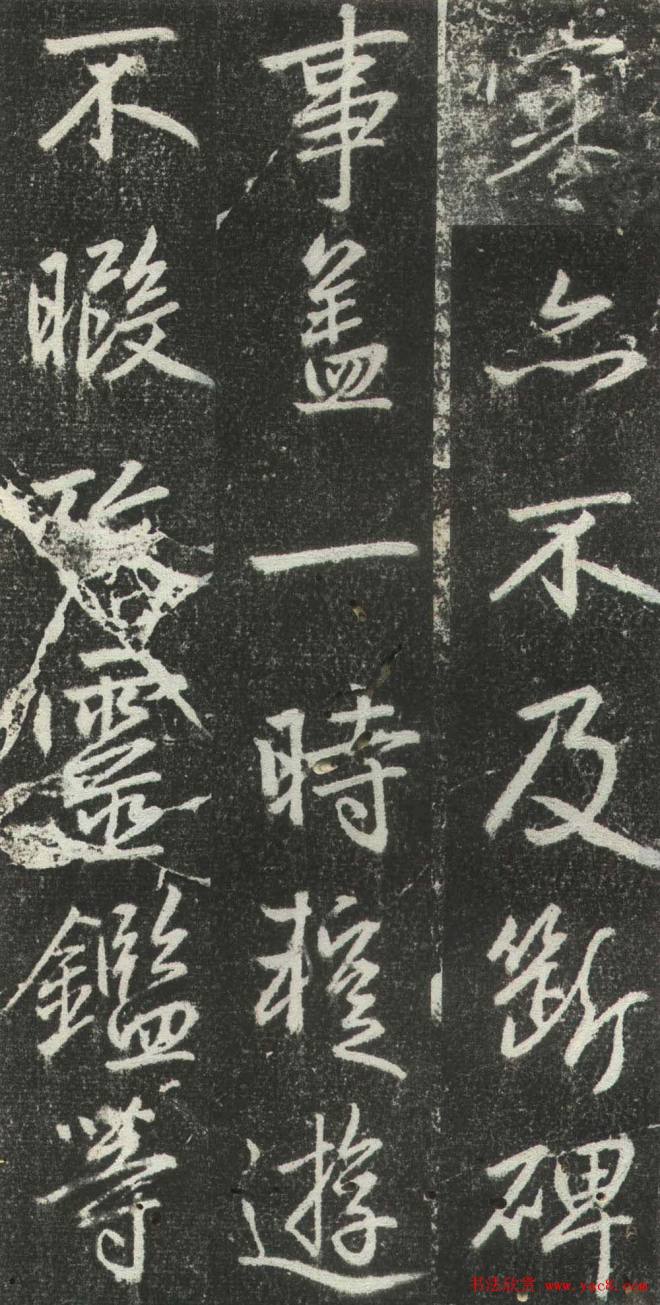 亦不及斷碑
事蓋一時遊
不暇靈鑑等
书法欣赏 www.yac8.com